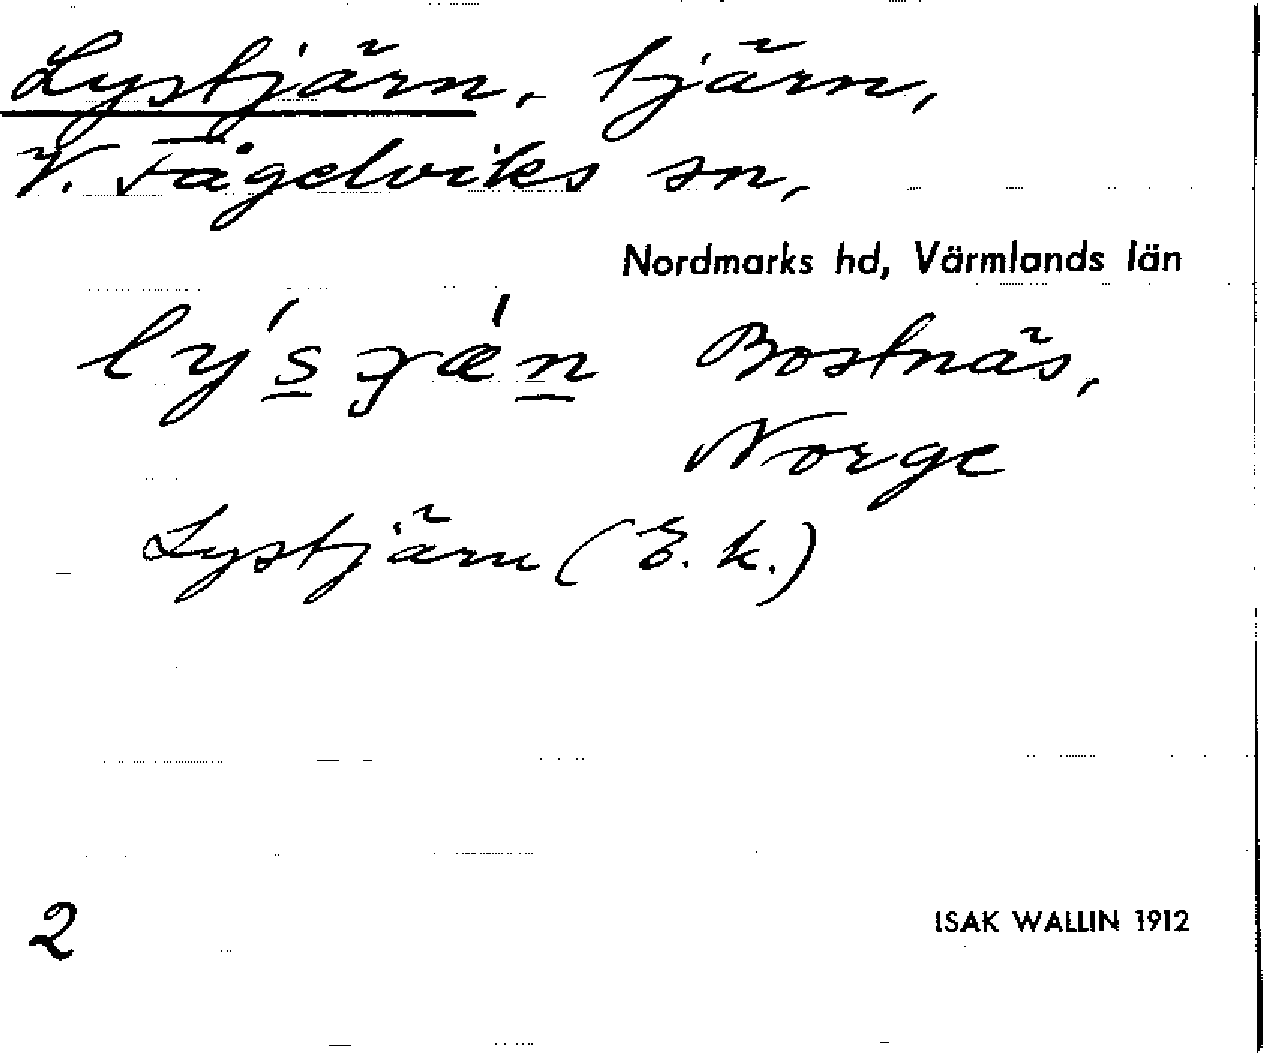 Lystjärn, tjärn,
V. Fågelviks sn,
Nordmarks hd, Värmlands län
Bostnäs,
Norge
Lystjärn (E. k.)
2
ISAK WALLIN 1912